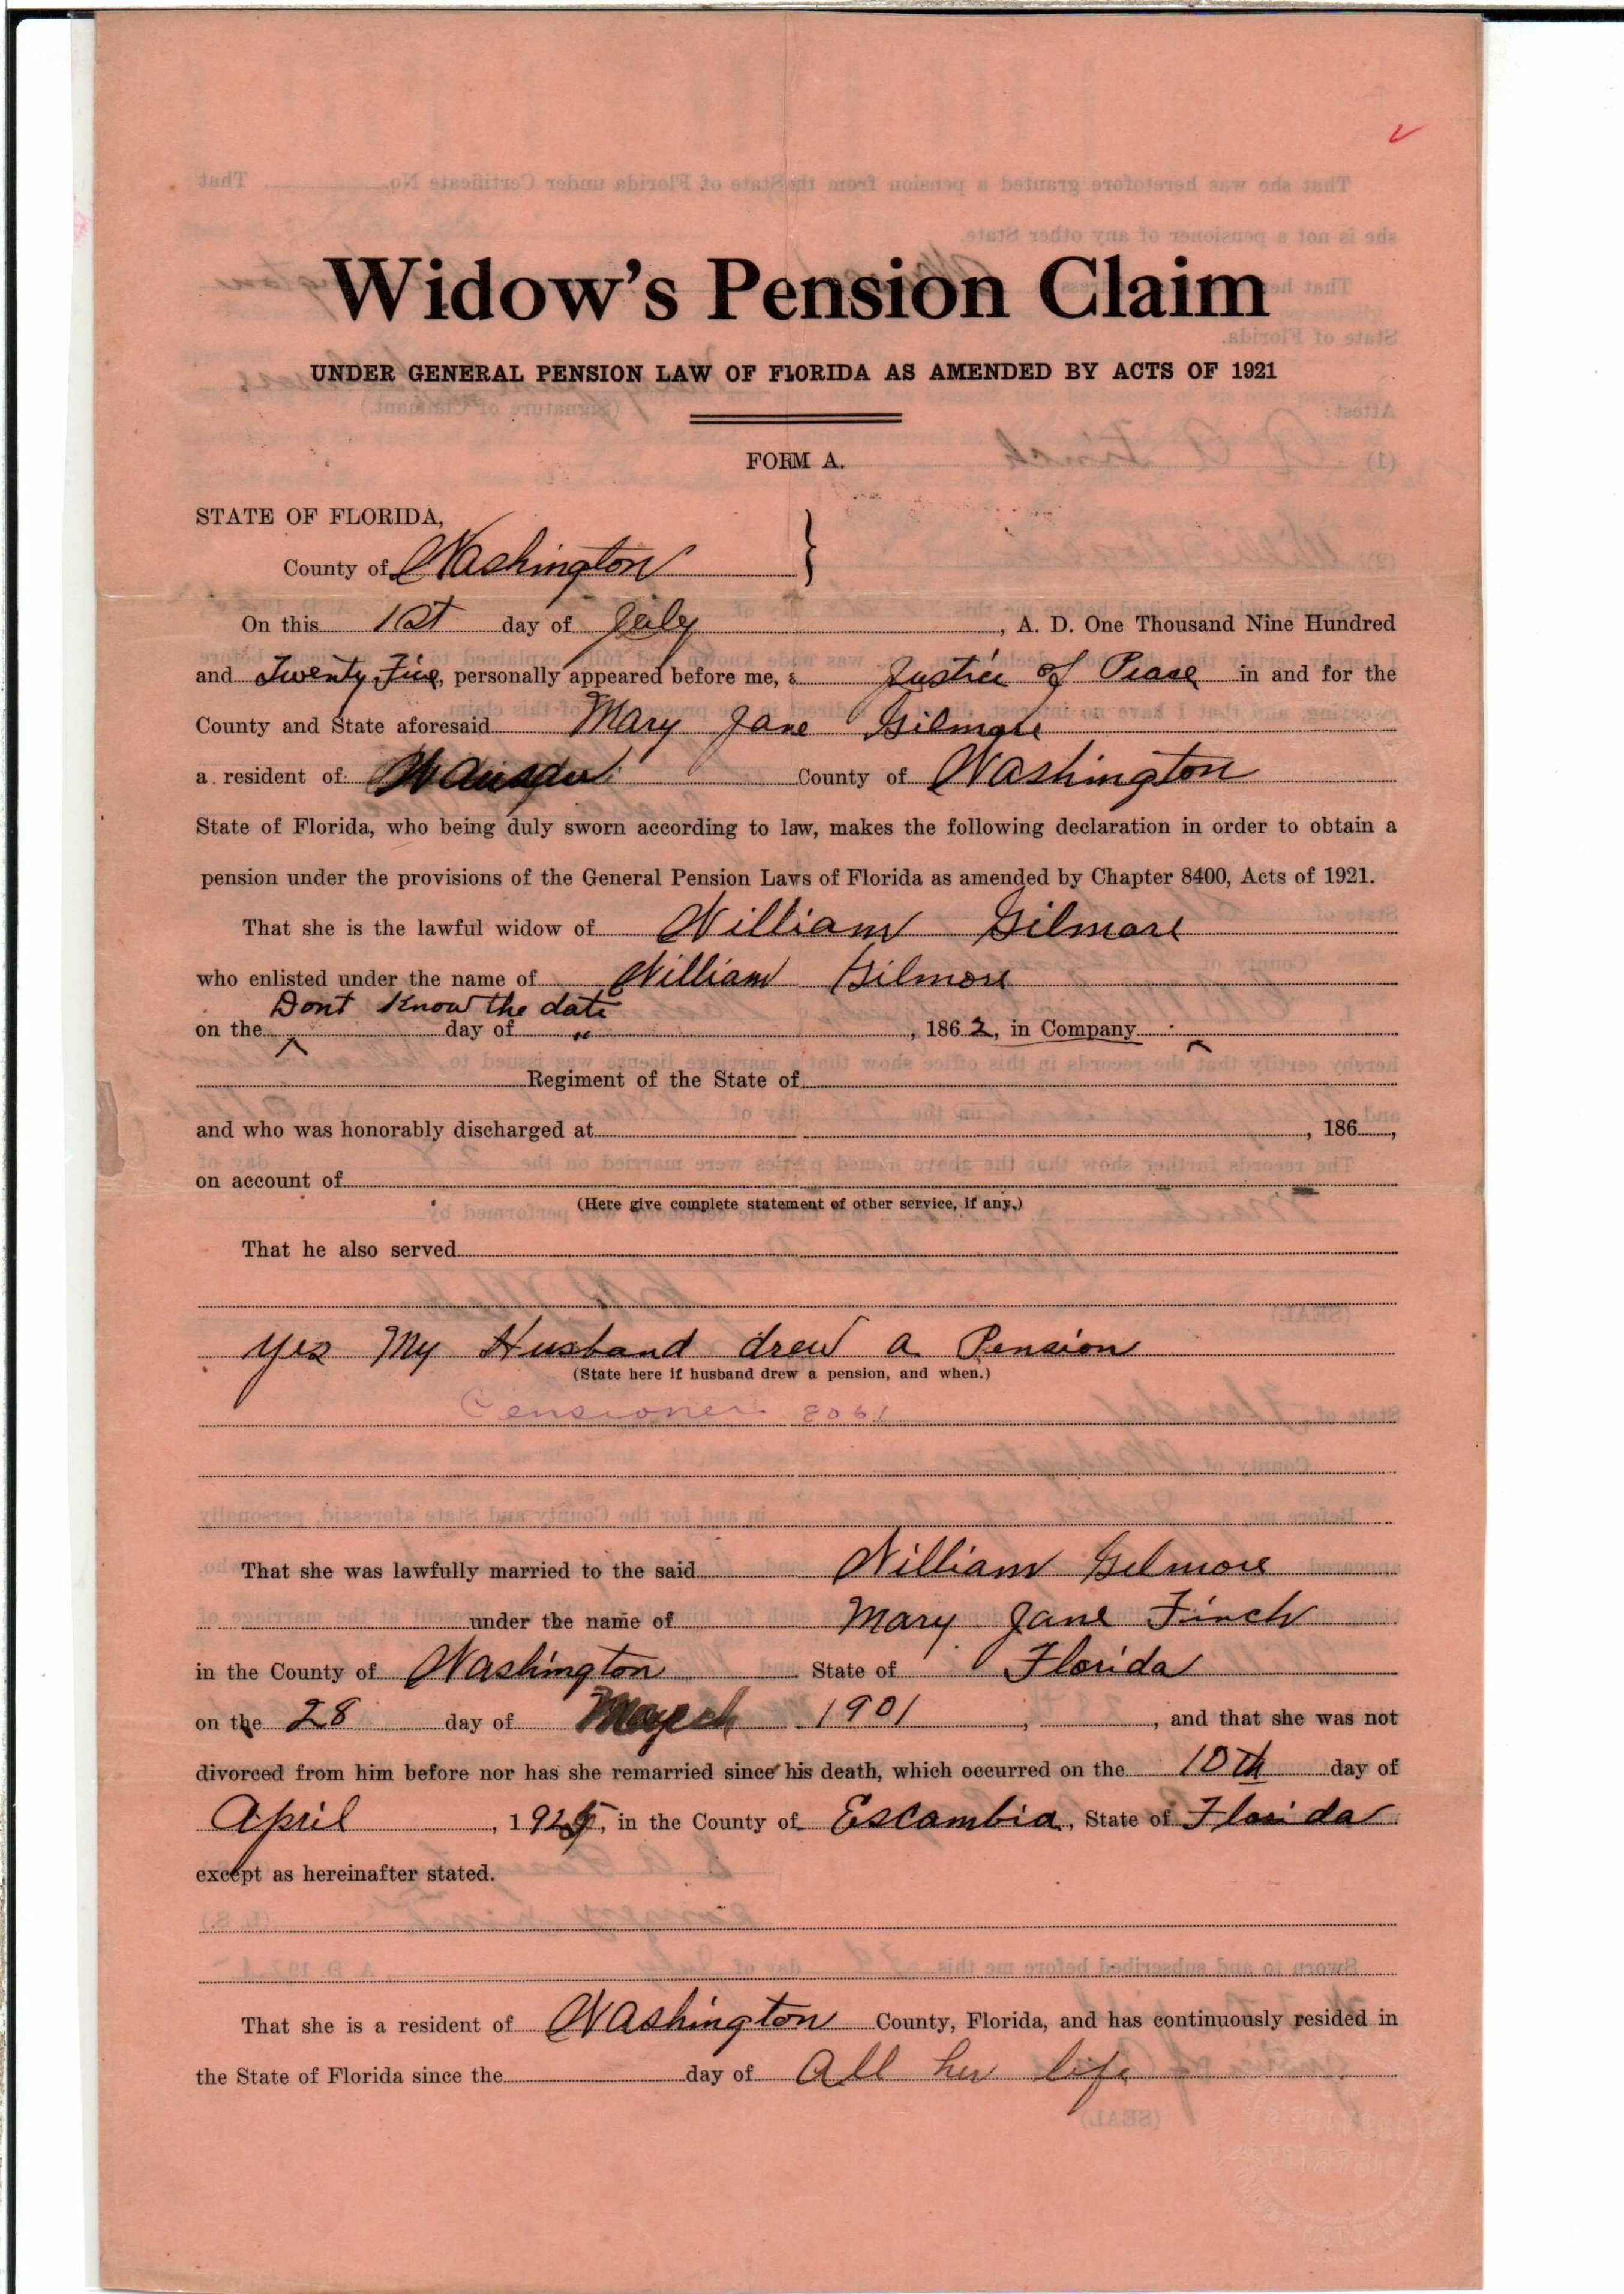 Widow's Pension Claim
UNDER GENERAL PENSION LAW OF FLORIDA AS AMENDED BY ACTS OF 1921
FORM A.
STATE OF FLORIDA,
County of Washington }
On this 1st day of July, A. D. One Thousand Nine Hundred
and Twenty Five, personally appeared before me, a Justice of Peace in and for the
County and State aforesaid Mary Jane Gilmore
a resident of County of Washington
State of Florida, who being duly sworn according to law, makes the following declaration in order to obtain a
pension under the provisions of the General Pension Laws of Florida as amended by Chapter 8400, Acts of 1921.
That she is the lawful widow of William Gilmore
who enlisted under the name of William Gilmore
Dont Know the date
on the day of " , 1862, in Company
Regiment of the State of
and who was honorably discharged at , 186 ,
on account of
(Here give complete statement of other service, if any.)
That he also served
Yes My Husband drew a Pension
(State here if husband drew a pension, and when.)
Pensioner 8061
That she was lawfully married to the said William Gilmore
under the name of Mary Jane Finch
in the County of Washington State of Florida
on the 28 day of March 1901 , , and that she was not
divorced from him before nor has she remarried since his death, which occurred on the 10th day of
April , 1925, in the County of Escambia, State of Florida
except as hereinafter stated.
That she is a resident of Washington County, Florida, and has continuously resided in
the State of Florida since the day of All her life